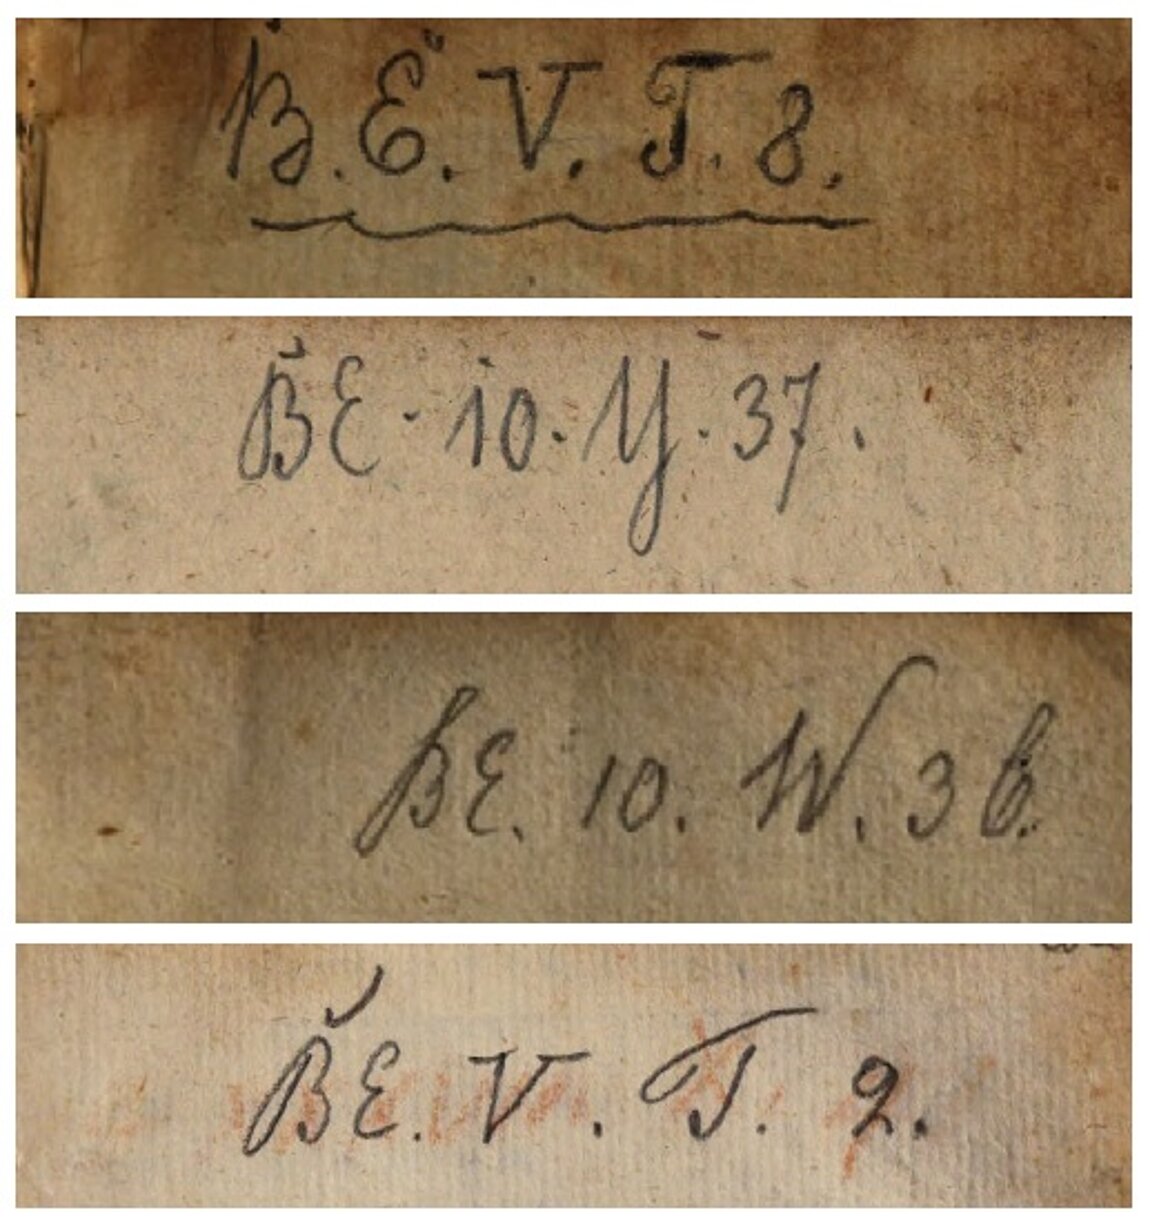 B.E.V.T.8.
BE.10.Y.37.
BE.10.W.36.
BE.V.T.2.